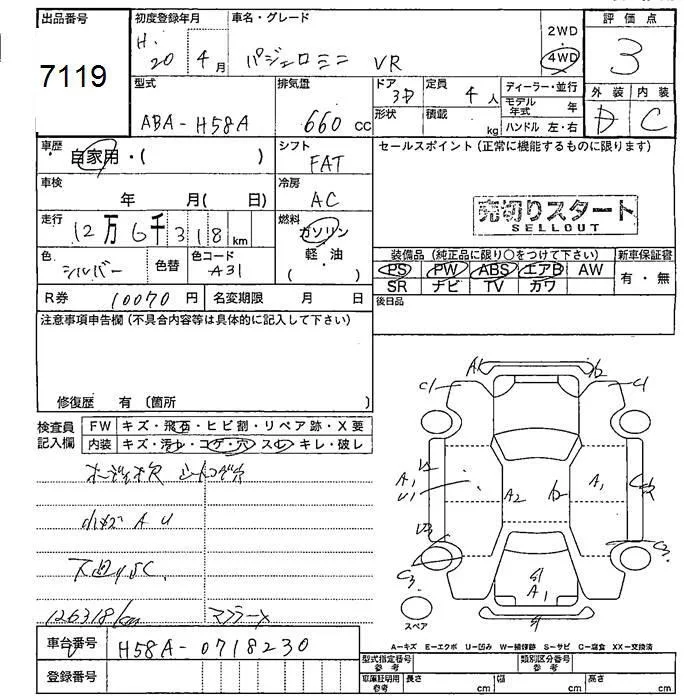 出品番号
7119
初度登録年月
H. 20 4 月
車名・グレード
パジェロミニ VR
2WD
4WD
評価点
3
外装 内装
D C
型式
ABA-H58A
排気量
660 cc
ドア 3D
形状
定員 4 人
積載 kg
ディーラー・並行
モデル年式 年
ハンドル 左・右
車歴
自家用・( )
シフト
FAT
セールスポイント(正常に機能するものに限ります)
車検
年 月( 日)
冷房
AC
売切りスタート
SELLOUT
走行
12万6千318km
燃料
ガソリン
軽・油
( )
色
シルバー
色替
色コード
A31
装備品(純正品に限り○をつけて下さい)
新車保証書
PS PW ABS エアB AW
有・無
SR ナビ TV カワ
R券 10070円
名変期限 月 日
後日品
注意事項申告欄(不具合内容等は具体的に記入して下さい)
修復歴 有 (箇所 )
検査員記入欄
FW キズ・飛石・ヒビ割・リペア跡・X要
内装 キズ・汚れ・コゲ・穴 スレ キレ・破レ
A1
C1
A1
U1
A2
A1
C3
C3
A1
スペア
小キズ A U
下回りSC
126318km
マフラーX
車台番号
H58A-0718230
登録番号
A-キズ E-エクボ U-凹み W-補修跡 S-サビ C-腐食 XX-交換済
型式指定番号 参考
類別区分番号 参考
車庫証明用 参考
長さ cm
幅 cm
高さ cm